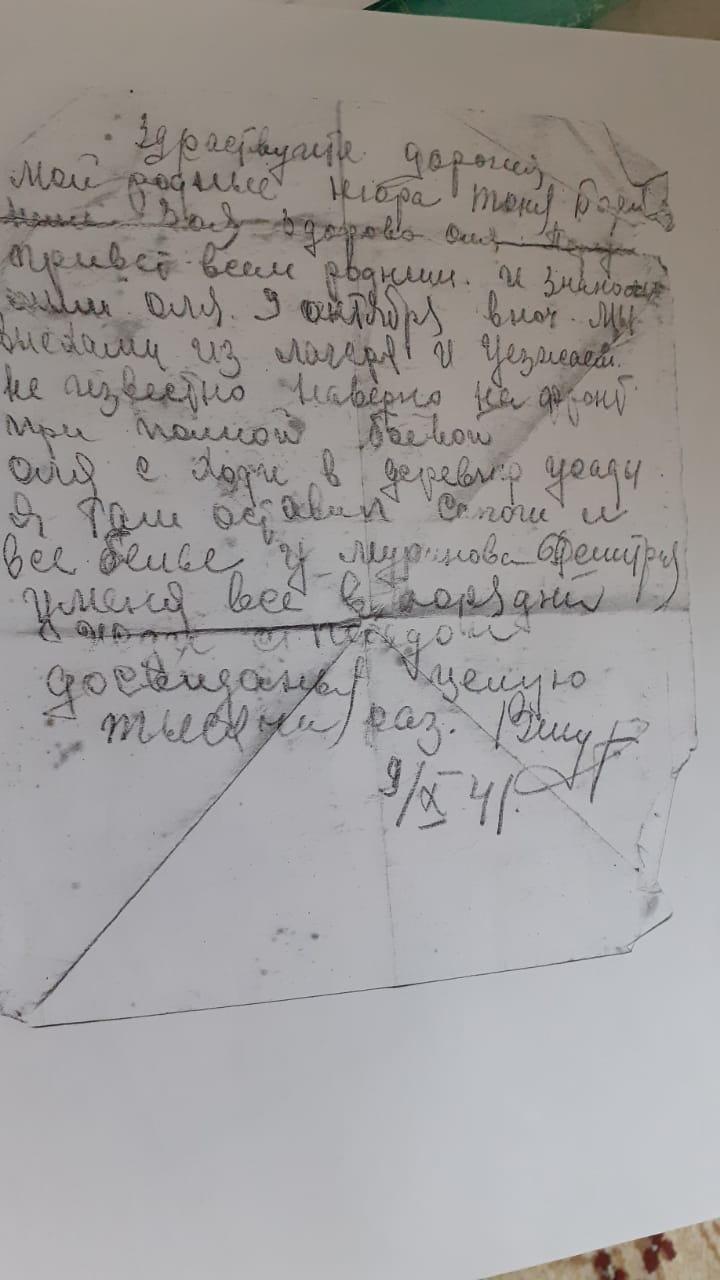 Здраствуите дорогия
мои родные нюра тоня
Зоя здорово оля
привет всем родним. и знаком
ыми оля. 9 октября вноч мы
выехали из лагеря и уезжаем.
не известно наверно на фронт
при полной боевой
оля с ходи в деревню усады
я там оставил сапоги и
все белье у миринова Дмитрия
уменя все в порядки
досвиданья целую
тысячи раз. Вашу
9/X 41.